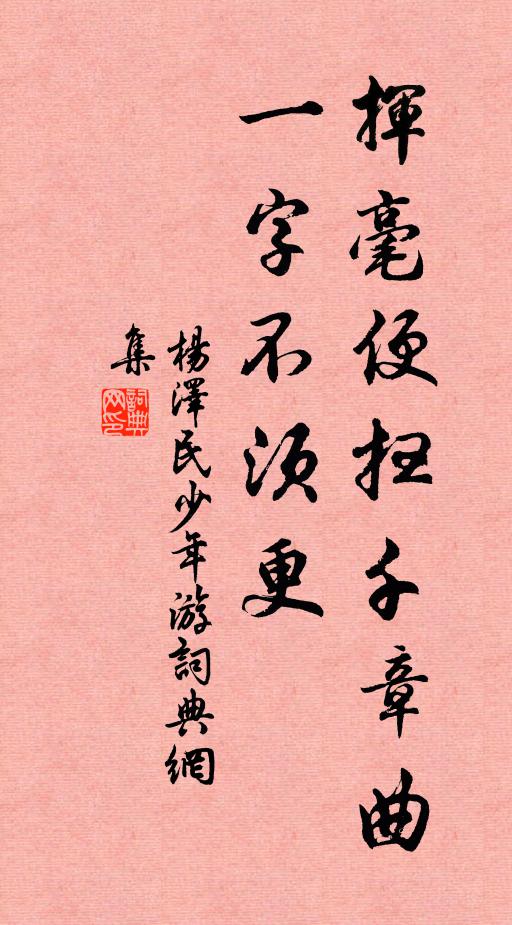 揮毫便扫千章曲
一字不須更
楊澤民少年游詞典網
集
詞典
网印